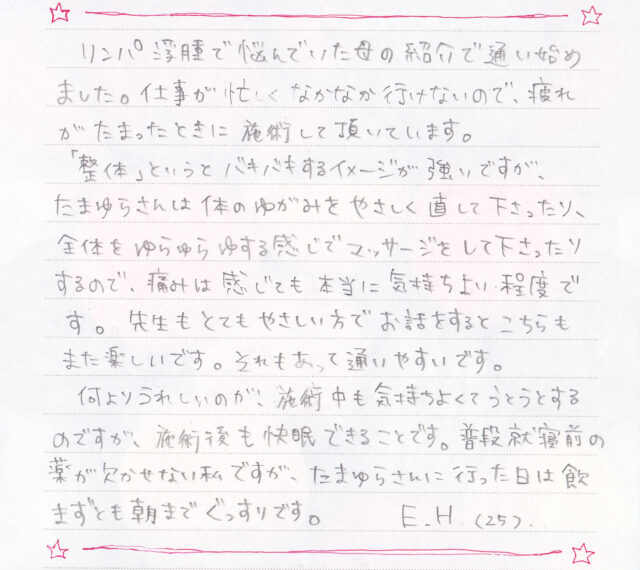 リンパ浮腫で悩んでいた母の紹介で通い始め
ました。仕事が忙しくなかなか行けないので、疲れ
がたまったときに施術して頂いています。
「整体」というとバキバキするイメージが強いですが、
たまゆらさんは体のゆがみをやさしく直して下さったり、
全体をゆらゆらゆする感じでマッサージをして下さったり
するので、痛みは感じても本当に気持ちよい程度で
す。先生もとてもやさしい方でお話をするとこちらも
また楽しいです。それもあって通いやすいです。
何よりうれしいのが、施術中も気持ちよくてうとうとする
のですが、施術後も快眠できることです。普段就寝前の
薬が欠かせない私ですが、たまゆらさんに行った日は飲
まずとも朝までぐっすりです。 E.H (25).